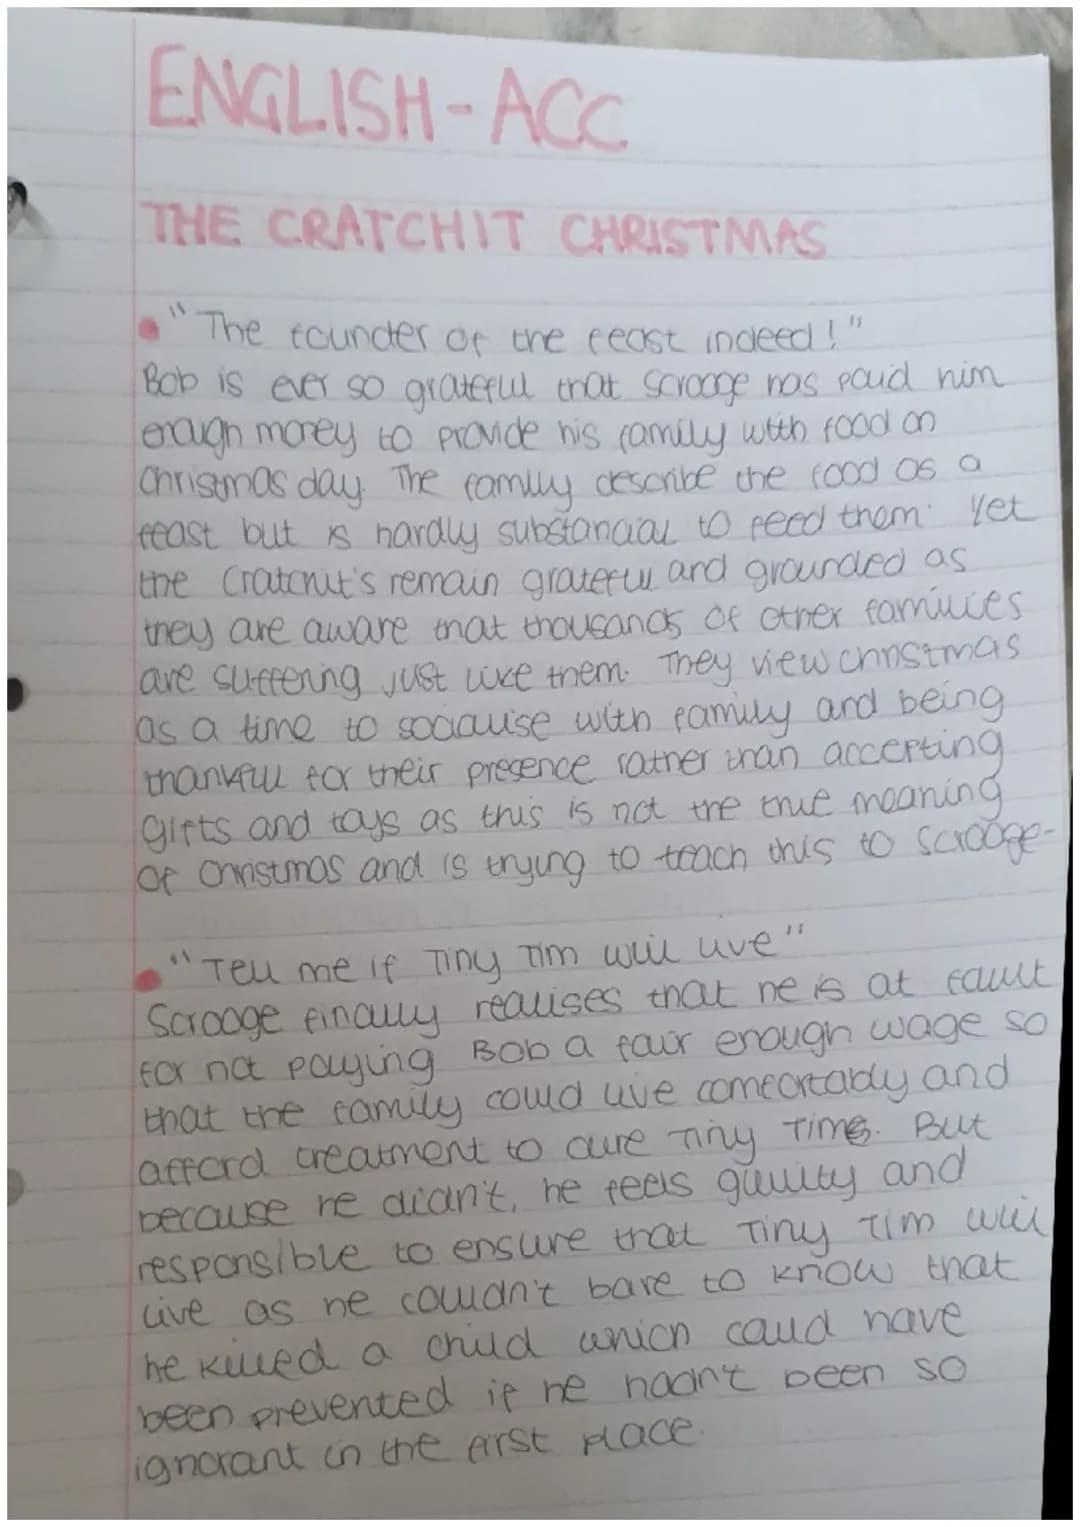 ENGLISH-ACC
THE CRATCHIT CHRISTMAS
• "The founder of the feast indeed!"
Bob is ever so grateful that Scrooge has paid him
enough money to provide his family with food on
Christmas day. The family describe the food as a
feast but is hardly substancial to feed them. Yet
the Cratchit's remain grateful and grounded as
they are aware that thousands of other families
are suffering just like them. They view christmas
as a time to socialise with family and being
thankful for their presence rather than accepting
gifts and toys as this is not the true meaning
of Christmas and is trying to teach this to Scrooge.
• "Tell me if Tiny Tim will live"
Scrooge finally realises that he is at fault
for not paying Bob a fair enough wage so
that the family could live comfortably and
afford treatment to cure Tiny Tim. But
because he didn't, he feels guilty and
responsible to ensure that Tiny Tim will
live as he couldn't bare to know that
he killed a child which could have
been prevented if he hadn't been so
ignorant in the first place.